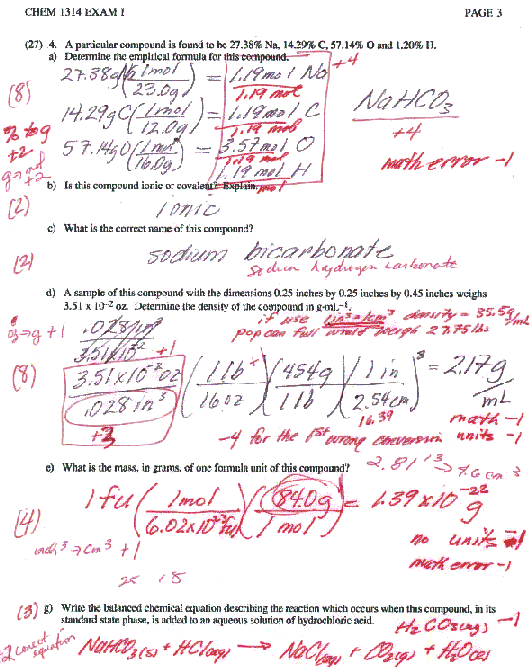 CHEM 1314 EXAM I PAGE 3
(27) 4. A particular compound is found to be 27.38% Na, 14.29% C, 57.14% O and 1.20% H.
a) Determine the empirical formula for this compound.
+4
27.38g (1mol / 23.0g) = 1.19mol Na
1.19 mol
(8)
14.29gC (1mol / 12.0g) = 1.19mol C
1.19 mol
NaHCO3
+4
% to g
+2
57.14gO (1mol / 16.0g) = 3.57mol O
1.19 mol
math error -1
+2
1.19 mol H
b) Is this compound ionic or covalent? Explain.
(2) ionic
c) What is the correct name of this compound?
(2) sodium bicarbonate
sodium hydrogen carbonate
d) A sample of this compound with the dimensions 0.25 inches by 0.25 inches by 0.45 inches weighs
3.51 x 10⁻² oz. Determine the density of the compound in g·mL⁻¹.
if use in³=cm³ density = 35.5g/mL
oz→g +1
.028in³
pop can full would weigh 27.75 lbs
3.51x10⁻² +1
(8)
3.51x10⁻²oz / .028in³ (1lb / 16oz)(454g / 1lb)(1in / 2.54cm)³ = 2.17g / mL
16.39
math -1
+3
-4 for the 1st wrong conversion units -1
e) What is the mass, in grams, of one formula unit of this compound?
(4)
1fu (1mol / 6.02x10²³fu)(84.0g / 1mol) = 1.39x10⁻²² g
no units -1
inch³→cm³ +1
math error -1
(3) g) Write the balanced chemical equation describing the reaction which occurs when this compound, in its
standard state phase, is added to an aqueous solution of hydrochloric acid.
H2CO3(aq) -1
2 correct equation
NaHCO3(s) + HCl(aq) → NaCl(aq) + CO2(g) + H2O(l)